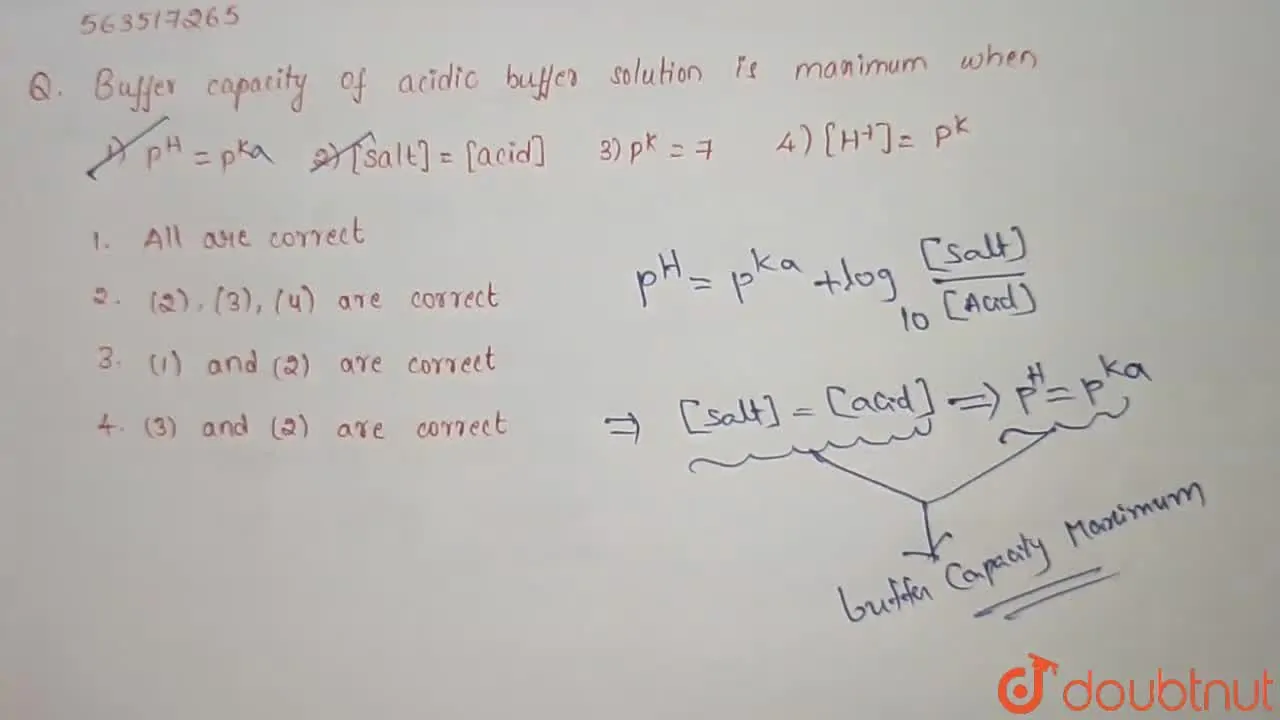 563517265
Q. Buffer capacity of acidic buffer solution is maximum when
1) pᴴ = pᵏᵃ 2) [salt] = [acid] 3) pᵏ = 7 4) [H⁺] = pᵏ
1. All are correct
2. (2), (3), (4) are correct
3. (1) and (2) are correct
4. (3) and (2) are correct
pᴴ = pᴷᵃ + log₁₀ [Salt]/[Acid]
⇒ [salt] = [acid] ⇒ pᴴ = pᴷᵃ
buffer Capacity Maximum
doubtnut